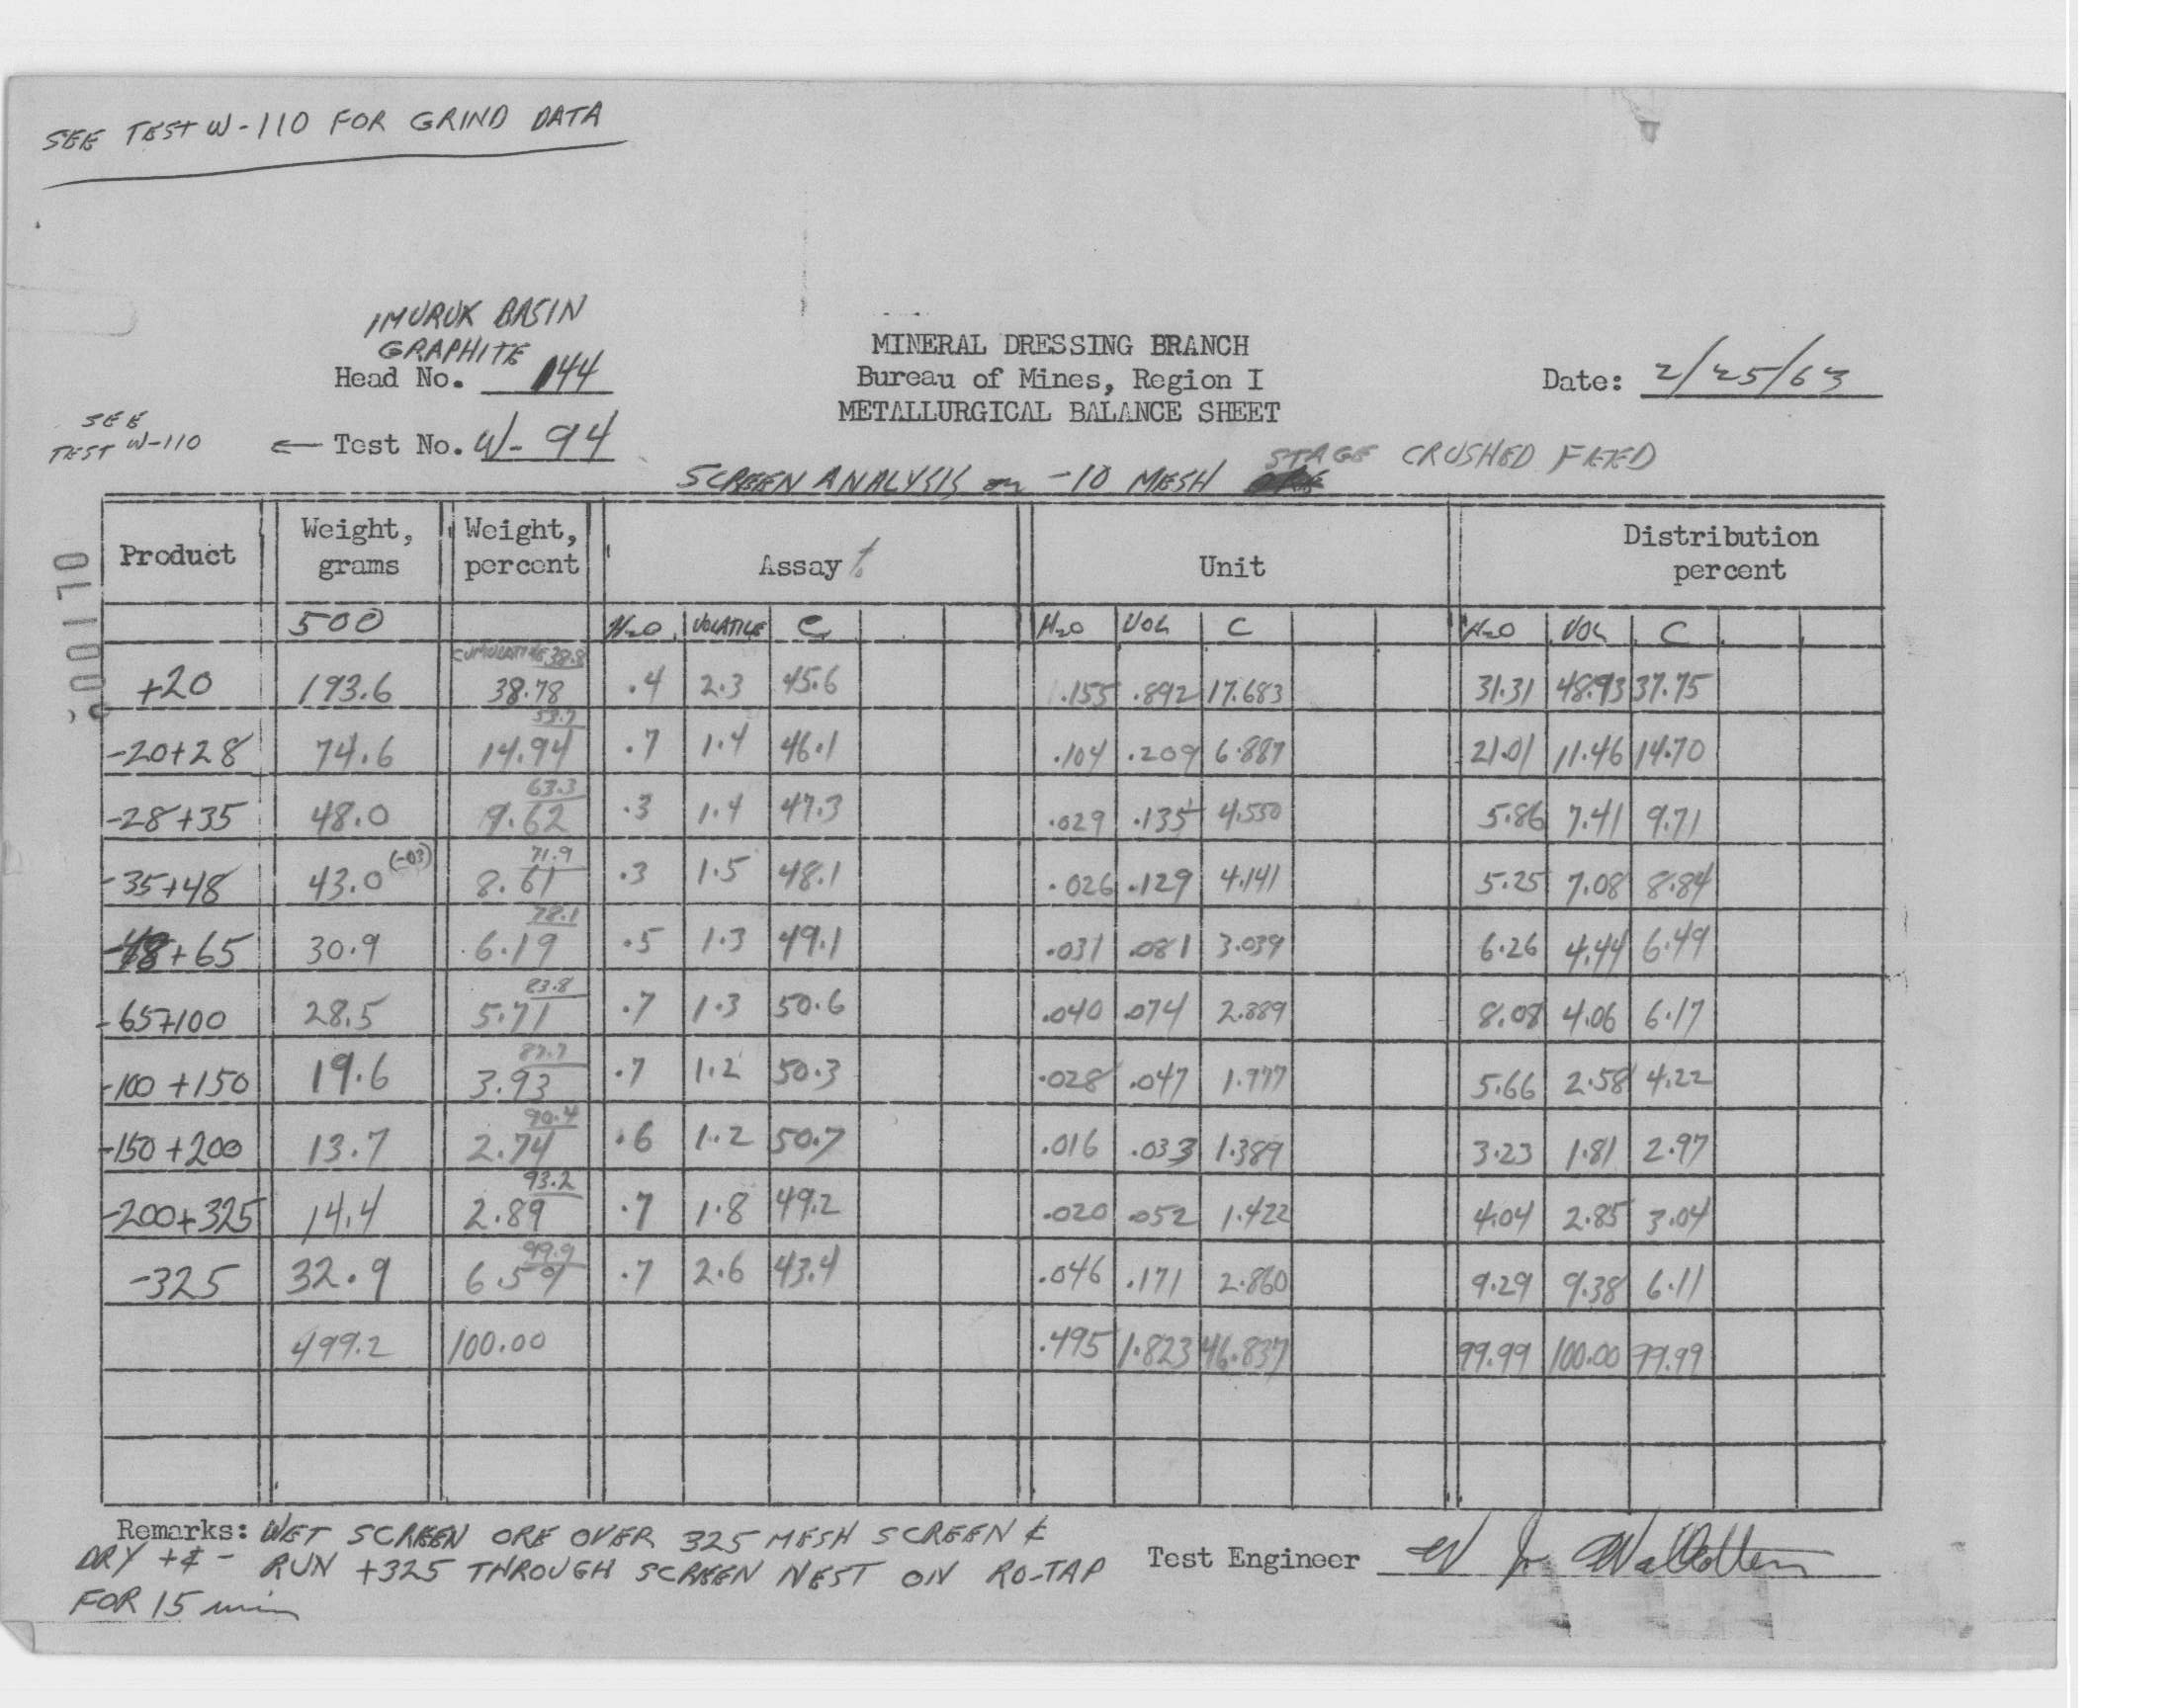 SEE TEST W-110 FOR GRIND DATA
IMURUK BASIN
GRAPHITE
Head No. 144
MINERAL DRESSING BRANCH
Bureau of Mines, Region I
METALLURGICAL BALANCE SHEET
Date: 2/25/63
SEE
TEST W-110 ← Test No. W-94
SCREEN ANALYSIS on -10 MESH STAGE CRUSHED FEED
Product Weight, grams Weight, percent Assay % Unit Distribution percent
500 H2O VOLATILE C H2O VOL C H2O VOL C
CUMULATIVE 38.8
+20 193.6 38.78 .4 2.3 45.6 .155 .892 17.683 31.31 48.93 37.75
53.7
-20+28 74.6 14.94 .7 1.4 46.1 .104 .209 6.887 21.01 11.46 14.70
63.3
-28+35 48.0 9.62 .3 1.4 47.3 .029 .135 4.550 5.86 7.41 9.71
71.9
-35+48 43.0 (-03) 8.61 .3 1.5 48.1 .026 .129 4.141 5.25 7.08 8.84
78.1
-48+65 30.9 6.19 .5 1.3 49.1 .031 .081 3.039 6.26 4.44 6.49
83.8
-65+100 28.5 5.71 .7 1.3 50.6 .040 .074 2.889 8.08 4.06 6.17
87.7
-100+150 19.6 3.93 .7 1.2 50.3 .028 .047 1.977 5.66 2.58 4.22
90.4
-150+200 13.7 2.74 .6 1.2 50.7 .016 .033 1.389 3.23 1.81 2.97
93.2
-200+325 14.4 2.89 .7 1.8 49.2 .020 .052 1.422 4.04 2.85 3.04
99.9
-325 32.9 6.59 .7 2.6 43.4 .046 .171 2.860 9.29 9.38 6.11
499.2 100.00 .495 1.823 46.837 99.99 100.00 99.99
Remarks: WET SCREEN ORE OVER 325 MESH SCREEN &
DRY + & - RUN +325 THROUGH SCREEN NEST ON RO-TAP
FOR 15 min
Test Engineer
000170